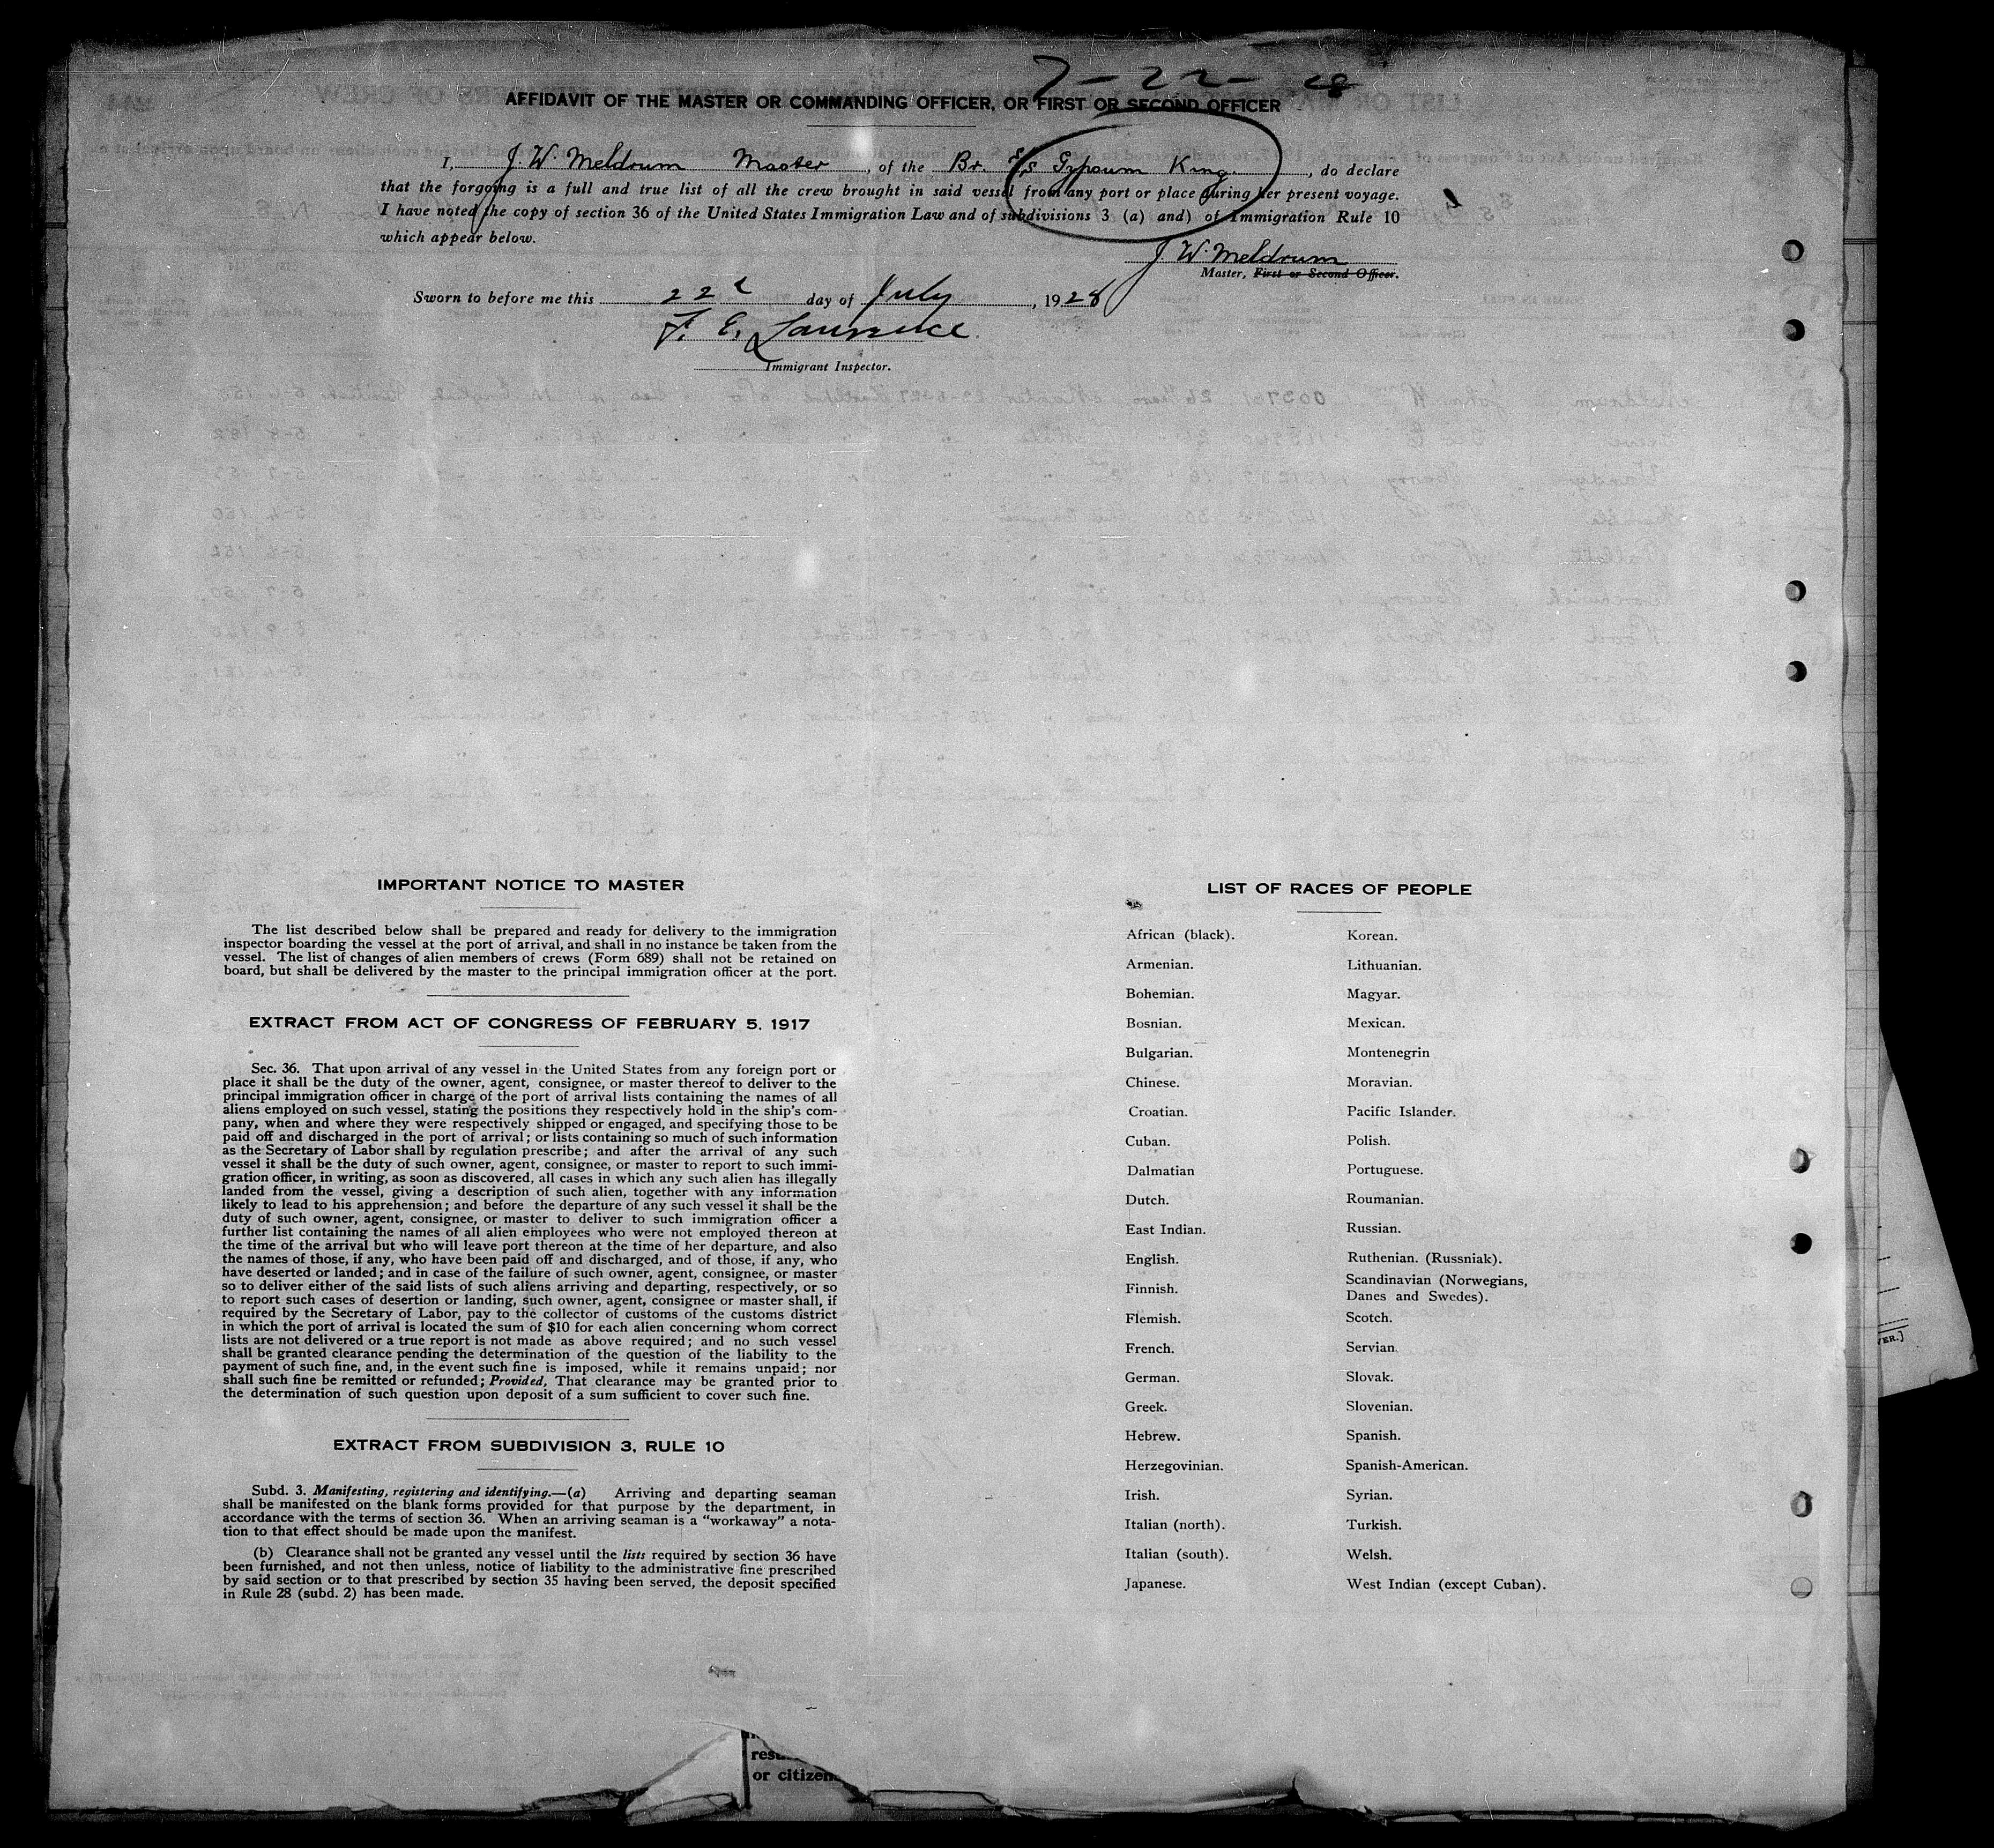 7-22-28
AFFIDAVIT OF THE MASTER OR COMMANDING OFFICER, OR FIRST OR SECOND OFFICER
I, J. W. Meldrum Master, of the Br. S/S Gypsum King., do declare
that the forgoing is a full and true list of all the crew brought in said vessel from any port or place during her present voyage.
I have noted the copy of section 36 of the United States Immigration Law and of subdivisions 3 (a) and) of Immigration Rule 10
which appear below.
J W. Meldrum
Master, First or Second Officer.
Sworn to before me this 22d day of July, 1928
F. E. Lawrence
Immigrant Inspector.
IMPORTANT NOTICE TO MASTER
The list described below shall be prepared and ready for delivery to the immigration
inspector boarding the vessel at the port of arrival, and shall in no instance be taken from the
vessel. The list of changes of alien members of crews (Form 689) shall not be retained on
board, but shall be delivered by the master to the principal immigration officer at the port.
EXTRACT FROM ACT OF CONGRESS OF FEBRUARY 5, 1917
Sec. 36. That upon arrival of any vessel in the United States from any foreign port or
place it shall be the duty of the owner, agent, consignee, or master thereof to deliver to the
principal immigration officer in charge of the port of arrival lists containing the names of all
aliens employed on such vessel, stating the positions they respectively hold in the ship's com-
pany, when and where they were respectively shipped or engaged, and specifying those to be
paid off and discharged in the port of arrival; or lists containing so much of such information
as the Secretary of Labor shall by regulation prescribe; and after the arrival of any such
vessel it shall be the duty of such owner, agent, consignee, or master to report to such immi-
gration officer, in writing, as soon as discovered, all cases in which any such alien has illegally
landed from the vessel, giving a description of such alien, together with any information
likely to lead to his apprehension; and before the departure of any such vessel it shall be the
duty of such owner, agent, consignee, or master to deliver to such immigration officer a
further list containing the names of all alien employees who were not employed thereon at
the time of the arrival but who will leave port thereon at the time of her departure, and also
the names of those, if any, who have been paid off and discharged, and of those, if any, who
have deserted or landed; and in case of the failure of such owner, agent, consignee, or master
so to deliver either of the said lists of such aliens arriving and departing, respectively, or so
to report such cases of desertion or landing, such owner, agent, consignee or master shall, if
required by the Secretary of Labor, pay to the collector of customs of the customs district
in which the port of arrival is located the sum of $10 for each alien concerning whom correct
lists are not delivered or a true report is not made as above required; and no such vessel
shall be granted clearance pending the determination of the question of the liability to the
payment of such fine, and, in the event such fine is imposed, while it remains unpaid; nor
shall such fine be remitted or refunded; Provided, That clearance may be granted prior to
the determination of such question upon deposit of a sum sufficient to cover such fine.
EXTRACT FROM SUBDIVISION 3, RULE 10
Subd. 3. Manifesting, registering and identifying.—(a) Arriving and departing seaman
shall be manifested on the blank forms provided for that purpose by the department, in
accordance with the terms of section 36. When an arriving seaman is a "workaway" a nota-
tion to that effect should be made upon the manifest.
(b) Clearance shall not be granted any vessel until the lists required by section 36 have
been furnished, and not then unless, notice of liability to the administrative fine prescribed
by said section or to that prescribed by section 35 having been served, the deposit specified
in Rule 28 (subd. 2) has been made.
LIST OF RACES OF PEOPLE
African (black). Korean.
Armenian. Lithuanian.
Bohemian. Magyar.
Bosnian. Mexican.
Bulgarian. Montenegrin
Chinese. Moravian.
Croatian. Pacific Islander.
Cuban. Polish.
Dalmatian Portuguese.
Dutch. Roumanian.
East Indian. Russian.
English. Ruthenian. (Russniak).
Finnish. Scandinavian (Norwegians,
Danes and Swedes).
Flemish. Scotch.
French. Servian.
German. Slovak.
Greek. Slovenian.
Hebrew. Spanish.
Herzegovinian. Spanish-American.
Irish. Syrian.
Italian (north). Turkish.
Italian (south). Welsh.
Japanese. West Indian (except Cuban).
or citizen